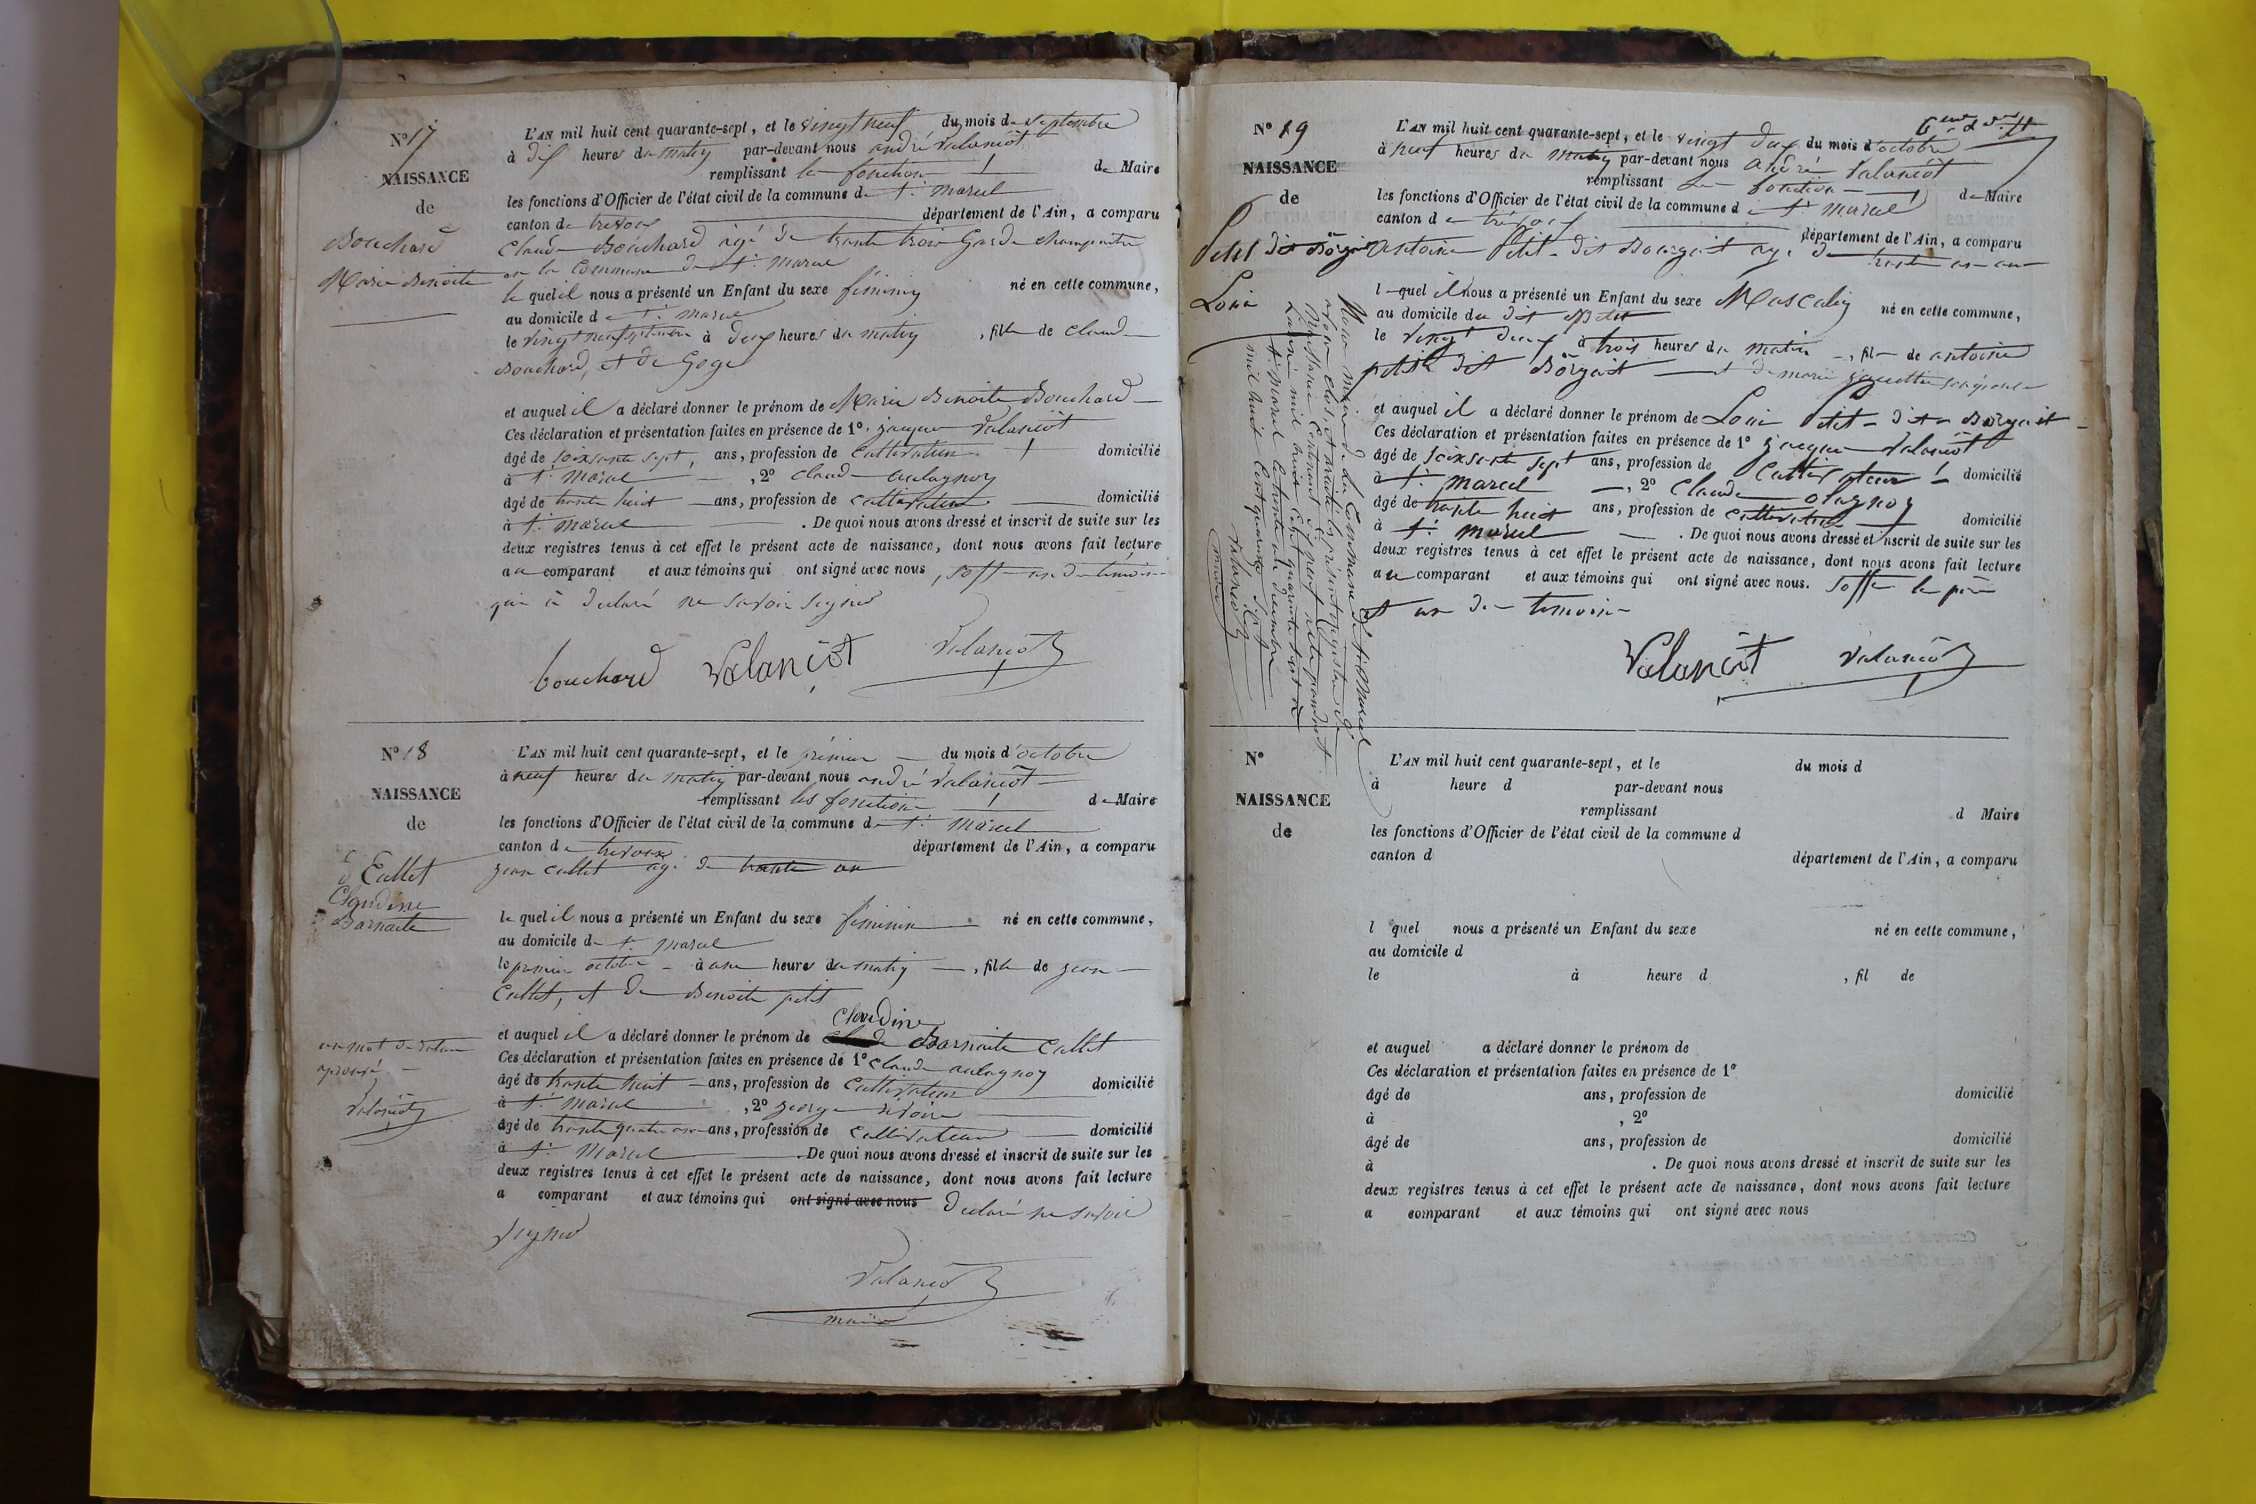 N° 17
NAISSANCE
de
Bouchard
Marie Benoite
L'AN mil huit cent quarante-sept, et le vingt neuf du mois de septembre
à dix heures du matin par-devant nous andré Valanciot
remplissant les fonctions de Maire
les fonctions d'Officier de l'état civil de la commune de St marcel
canton de trevoux département de l'Ain, a comparu
Claude Bouchard agé de trente trois Garde champetre
de la Commune de St marcel
le quel il nous a présenté un Enfant du sexe feminin né en cette commune,
au domicile de St marcel
le vingt neuf septembre à deux heures du matin, fille de claude
Bouchard, et de Goge
et auquel il a déclaré donner le prénom de Marie Benoite Bouchard
Ces déclaration et présentation faites en présence de 1° jacque Valanciot
âgé de soixsante sept, ans, profession de Cultivateur domicilié
à St marcel, 2° claude aulagnoy
âgé de trante huit ans, profession de cultivateur domicilié
à St marcel. De quoi nous avons dressé et inscrit de suite sur les
deux registres tenus à cet effet le présent acte de naissance, dont nous avons fait lecture
au comparant et aux témoins qui ont signé avec nous, soff un de temoin
qui à declaré ne savoir signer
bouchard Valanciot Valanciot
N° 18
NAISSANCE
de
Callet
Claudine
Barnaite
L'AN mil huit cent quarante-sept, et le premier du mois d'octobre
à neuf heures du matin par-devant nous andré Valanciot
remplissant les fonctions de Maire
les fonctions d'Officier de l'état civil de la commune de St marcel
canton de trevoux département de l'Ain, a comparu
jean callet agé de trante an
le quel il nous a présenté un Enfant du sexe feminin né en cette commune,
au domicile de St marcel
le premier octobre à une heure du matin, fille de jean
Callet, et de Benoite petit
Claudine
et auquel il a déclaré donner le prénom de Barnaite Callet
un mot de
aprouvé
Valanciot
Ces déclaration et présentation faites en présence de 1° Claude aulagnoy
âgé de trante huit ans, profession de Cultivateur domicilié
à St marcel, 2° george
âgé de trante quatre ans, profession de Cultivateur domicilié
à St Marcel. De quoi nous avons dressé et inscrit de suite sur les
deux registres tenus à cet effet le présent acte de naissance, dont nous avons fait lecture
a comparant et aux témoins qui ont signé avec nous declaré ne savoir
signer
Valanciot
maire
N° 19
NAISSANCE
de
Petit dit Borgait
Loui
L'AN mil huit cent quarante-sept, et le vingt deux du mois d'octobre
à neuf heures du matin par-devant nous andré Valanciot
remplissant les fonction de Maire
les fonctions d'Officier de l'état civil de la commune de St marcel
canton de trévoux département de l'Ain, a comparu
Antoine Petit dit Bourgait agé de trante an
le quel il nous a présenté un Enfant du sexe Mascalin né en cette commune,
au domicile du dit Petit
le vingt deux à trois heures du matin, fils de antoine
petit dit Borgait et de marie
et auquel il a déclaré donner le prénom de Loui Petit dit Borgait
Ces déclaration et présentation faites en présence de 1° jacque Valanciot
âgé de soixsante sept ans, profession de Cultivateur domicilié
à St marcel, 2° Claude olagnoy
âgé de trante huit ans, profession de cultivateur domicilié
à St marcel. De quoi nous avons dressé et inscrit de suite sur les
deux registres tenus à cet effet le présent acte de naissance, dont nous avons fait lecture
au comparant et aux témoins qui ont signé avec nous. soffe le père
et un de temoin
Valanciot Valanciot
Nous maire de la Commune de St Marcel
avons clos et arrêté le présent registre de
Naissance Contenant dix neuf acte pendant
L'année mil huit cent quarante sept
St Marcel le trente un decembre
mil huit Cent quarante sept
Valanciot
maire
N°
NAISSANCE
de
L'AN mil huit cent quarante-sept, et le du mois d
à heure d par-devant nous
remplissant d Maire
les fonctions d'Officier de l'état civil de la commune d
canton d département de l'Ain, a comparu
l quel nous a présenté un Enfant du sexe né en cette commune,
au domicile d
le à heure d, fil de
et auquel a déclaré donner le prénom de
Ces déclaration et présentation faites en présence de 1°
âgé de ans, profession de domicilié
à, 2°
âgé de ans, profession de domicilié
à. De quoi nous avons dressé et inscrit de suite sur les
deux registres tenus à cet effet le présent acte de naissance, dont nous avons fait lecture
a comparant et aux témoins qui ont signé avec nous